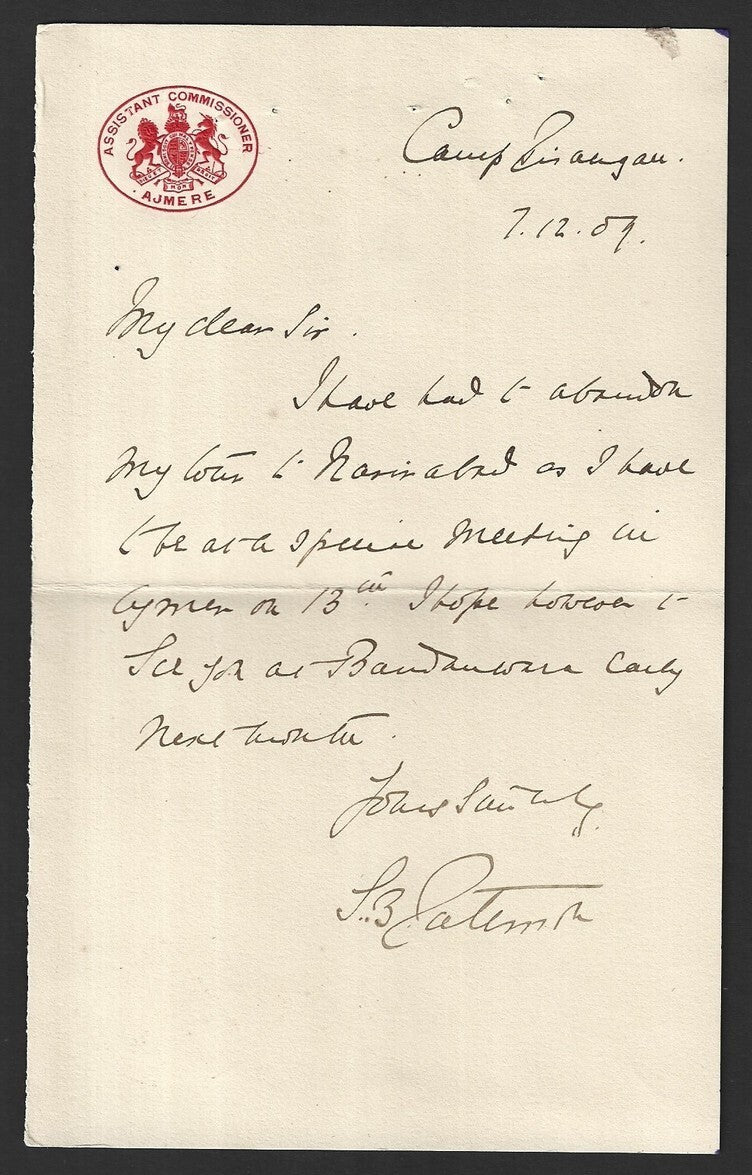 ASSISTANT COMMISSIONER
AJMERE
Camp Pisangan.
7.12.09.
My dear Sir.
I have had to abandon
my tour to Nasirabad as I have
to be at a special meeting in
Ajmer on 13th. I hope however to
See you at Bandanwara early
next month.
Yours Sincerely
S.B. Paterson